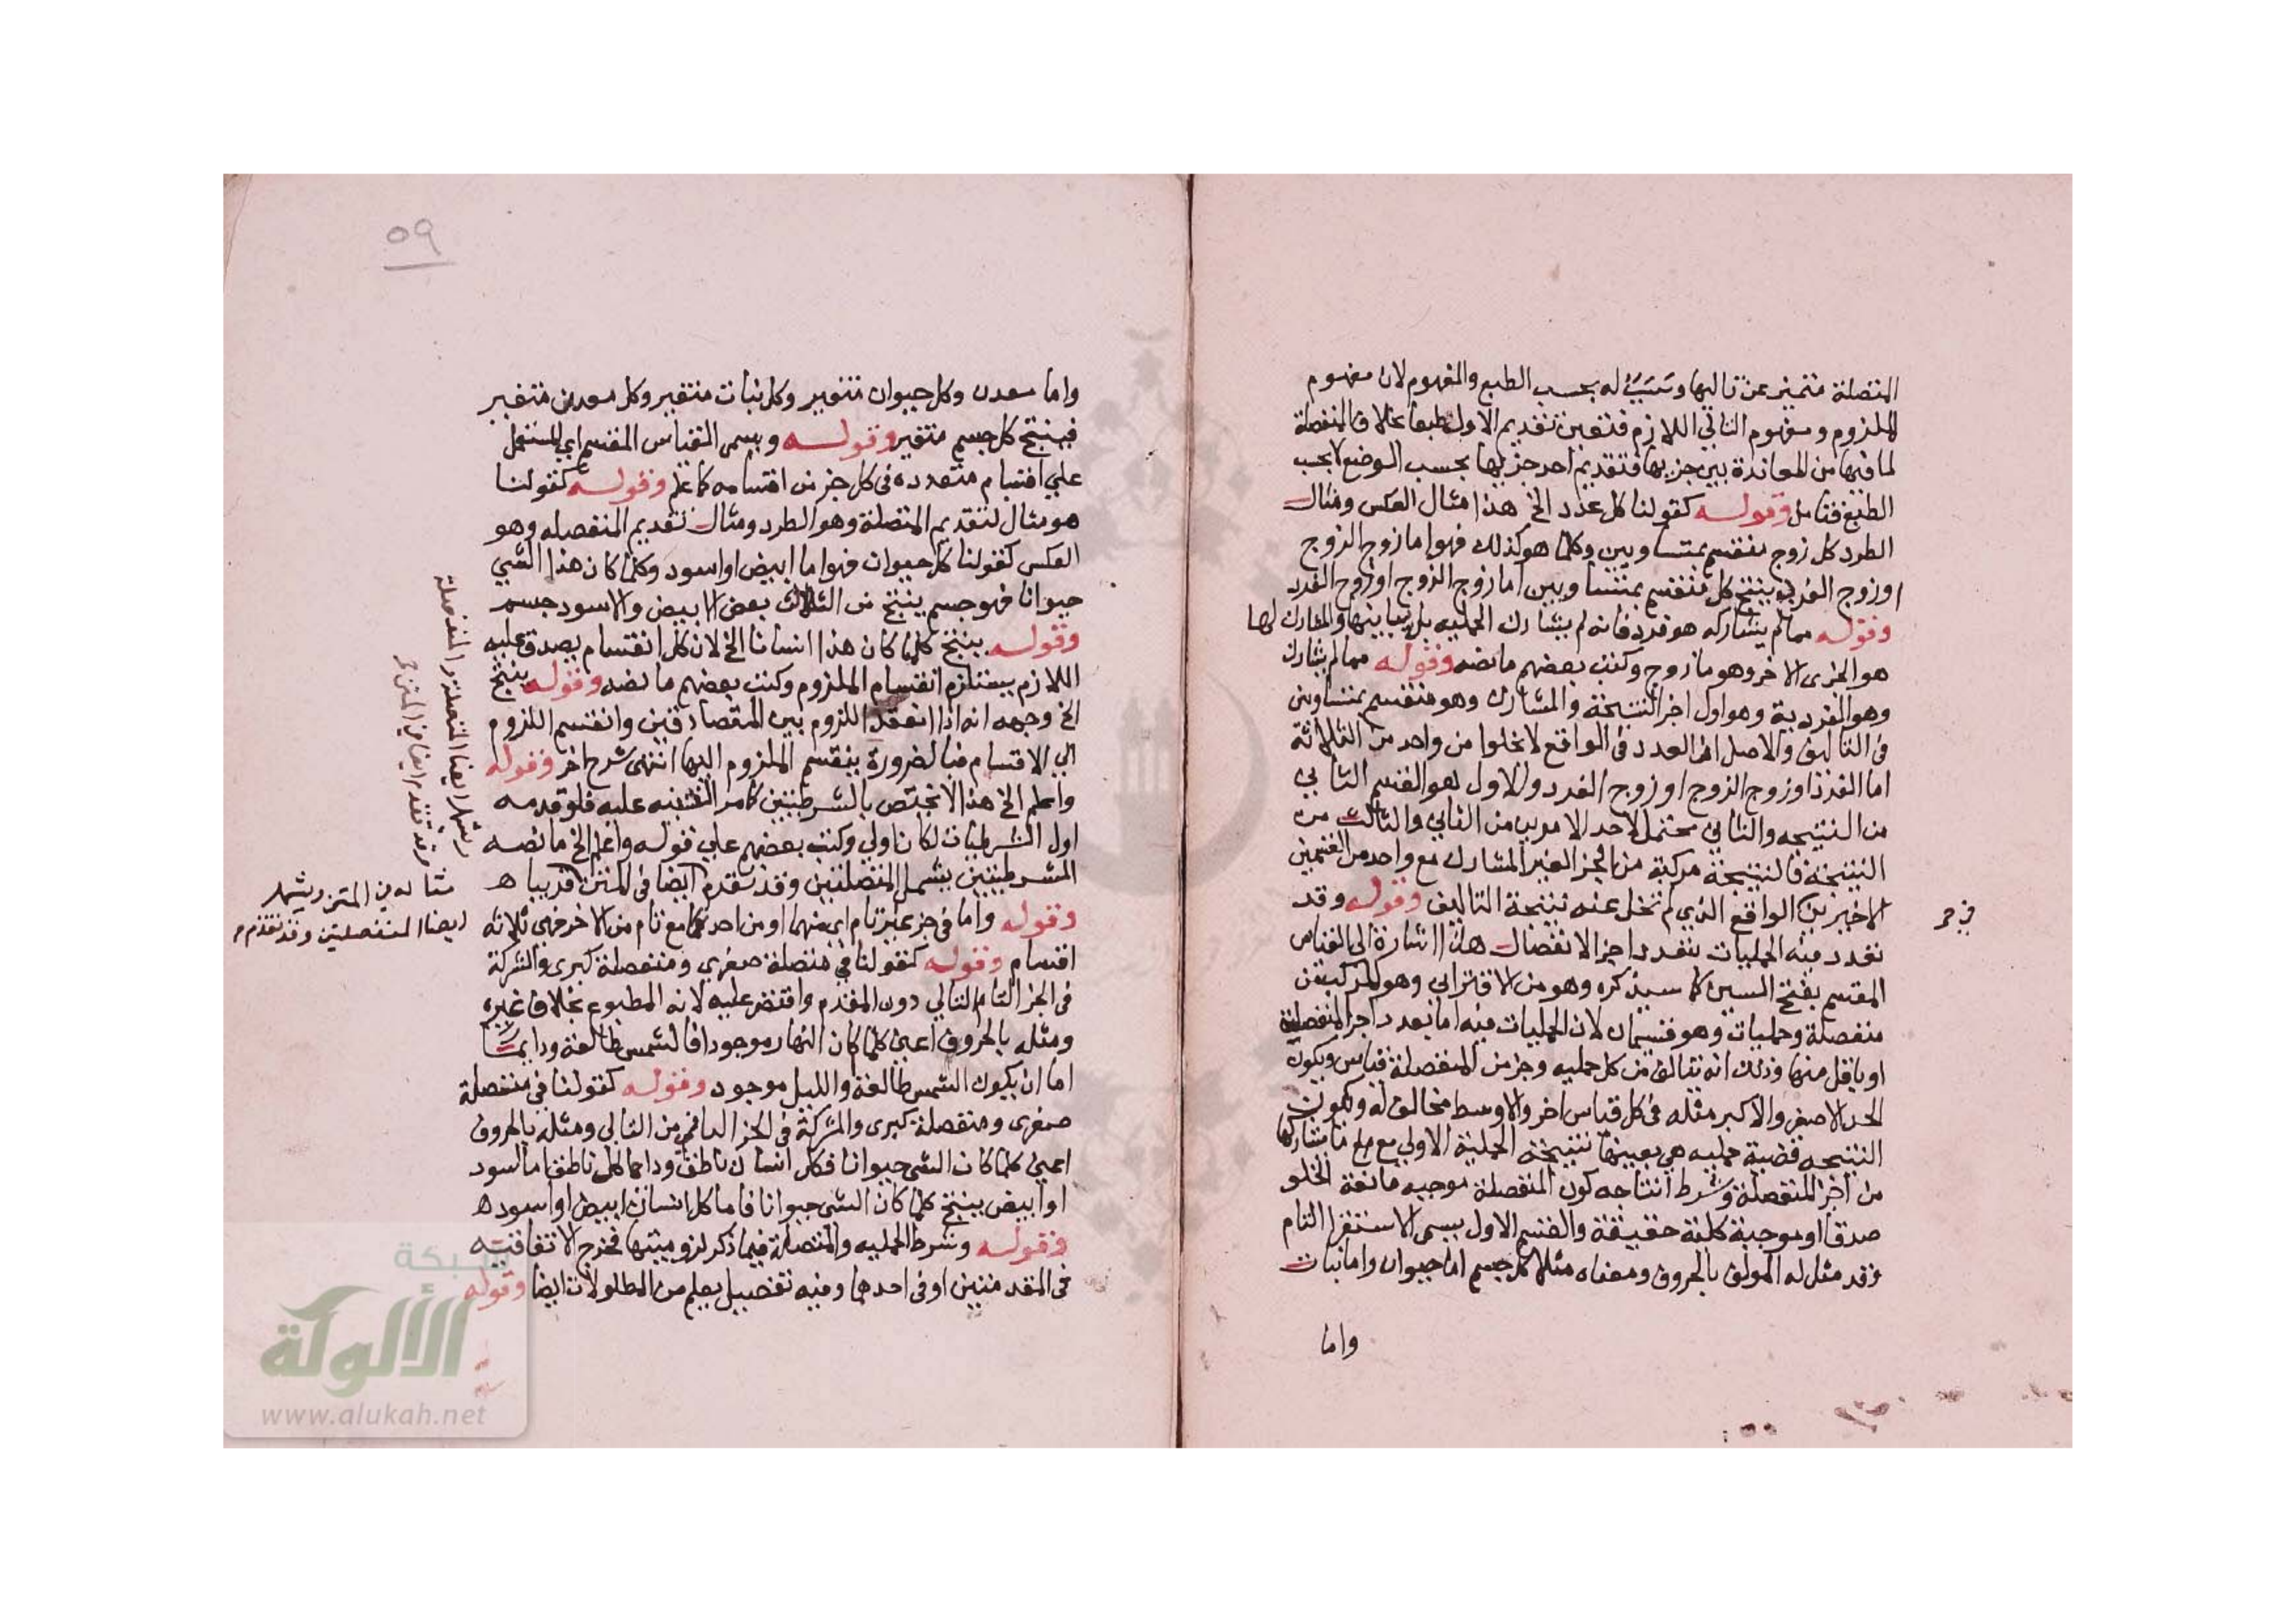 المتصلة متميز عن تاليها وسبب له بحسب الطبع والمفهوم لان مفهوم
الملزوم ومفهوم التالي اللازم فتعين تقديم الاول طبعا بخلاف المنفصلة
لما فيها من المعاندة بين جزءيها فتقديم احد جزءيها بحسب الوضع لا بحسب
الطبع فتامل وقوله كقولنا كل عدد الخ هذا مثال العكس ومثال
الطرد كل زوج منقسم بمتساويين وكلما هو كذلك فهو اما زوج الزوج
او زوج الفرد ينتج كل منقسم بمتساويين اما زوج الزوج او زوج الفرد
وقوله مما لم يشاركه هو فرد فانه لم يشارك الحمليه بل يباينها والمشارك لها
هو الجزء الاخر وهو ما زوج وكتب بعضهم ما نصه وقوله مما لم يشارك
وهو الفردية وهو اول اجزا النتيجة والمشارك وهو منقسم بمتساويين
في التاليف والاصل ان العدد في الواقع لا يخلوا من واحد من الثلاثة
اما الفرد او زوج الزوج او زوج الفرد والاول هو القسم الثاني
من النتيجه والثاني محتمل لاحد الامرين من الثاني والثالث من
النتيجة فالنتيجة مركبة من الجزء الغير المشارك مع واحد من القسمين
الاخيرين الواقع الذي لم تخل عنه نتيجة التاليف وقوله وقد
تعدد فيه الحمليات بتعدد اجزا الانفصال هذا اشارة الي القياس
المقسم بفتح السين كما سيذكره وهو من الاقتراني وهو المركب من
منفصلة وحمليات وهو قسمان لان الحمليات فيه اما بعدد اجزا المنفصلة
او باقل منها وذلك انه يتالف من كل حمليه وجزء من المنفصلة قياس ويكون
الحد الاصغر والاكبر مثله في كل قياس اخر والاوسط مخالف له وتكون
النتيجه قضية حمليه هي بعينها نتيجة الحملية الاولي مع ما يشاركها
من اجزا المنفصلة وشرط انتاجه كون المنفصلة موجبه مانعة الخلو
صدقا او موجبة كلية حقيقة والقسم الاول يسمى الاستقرا التام
وقد مثل له المولف بالحروف ومعناه مثلا كل جسم اما حيوان واما نبات
واما
في
٥٩
واما معدن وكل حيوان متغير وكل نبات متغير وكل معدن متغير
فينتج كل جسم متغير وقوله ويسمى القياس المقسم اي المشتمل
علي اقسام متعدده في كل جزء من اقسامه كما علم وقوله كقولنا
هو مثال لتقديم المتصلة وهو الطرد ومثال تقديم المنفصله وهو
العكس كقولنا كل حيوان فهو اما ابيض او اسود وكلما كان هذا الشي
حيوانا فهو جسم ينتج من الثالث بعض الابيض والاسود جسم
وقوله ينتج كلما كان هذا انسانا الخ لان كل انقسام يصدق عليه
اللازم يستلزم انقسام الملزوم وكتب بعضهم ما نصه وقوله ينتج
الخ وجهه انه اذا انعقد اللزوم بين المتصادقين وانقسم اللزوم
الي الاقسام فبالضرورة ينقسم الملزوم اليها انتهى شرح اخر وقوله
واعلم الخ هذا لا يختص بالشرطيتين كما مر التنبيه عليه فلو قدمه
اول الشرطيات لكان اولي وكتب بعضهم علي قوله واعلم الخ ما نصه
الشرطيتين يشمل المتصلتين وقد تقدم ايضا في المتن قريبا ه
وقوله واما في جزء غير تام اي منهما او من احدهما مع تام من الاخر فهي ثلاثة
اقسام وقوله كقولنا في متصلة صغرى ومنفصلة كبرى والشركة
في الجز التام التالي دون المقدم واقتصر عليه لانه المطبوع بخلاف غيره
ومثله بالحروف اعني كلما كان النهار موجودا فالشمس طالعة ودايما
اما ان يكون الشمس طالعة والليل موجود وقوله كقولنا في متصلة
صغرى ومنفصلة كبرى والشركة في الجز الناقص من التالي ومثله بالحروف
اعني كلما كان الشي حيوانا فكل انسان ناطق ودايما كل ناطق اما اسود
او ابيض ينتج كلما كان الشي حيوانا فاما كل انسان ابيض او اسود ه
وقوله وشرط الحمليه والمتصلة فيما ذكر لزوميتها فخرج الاتفاقيه
في المقدمتين او في احدهما وفيه تفصيل يعلم من المطولات ايضا وقوله
ويشمل ايضا المتصلة والمنفصلة
وقد تقدم ايضا في المتن
مثاله في المتن ويشمل
ايضا المنفصلتين وقد تقدم
شبكة
الألوكة
www.alukah.net